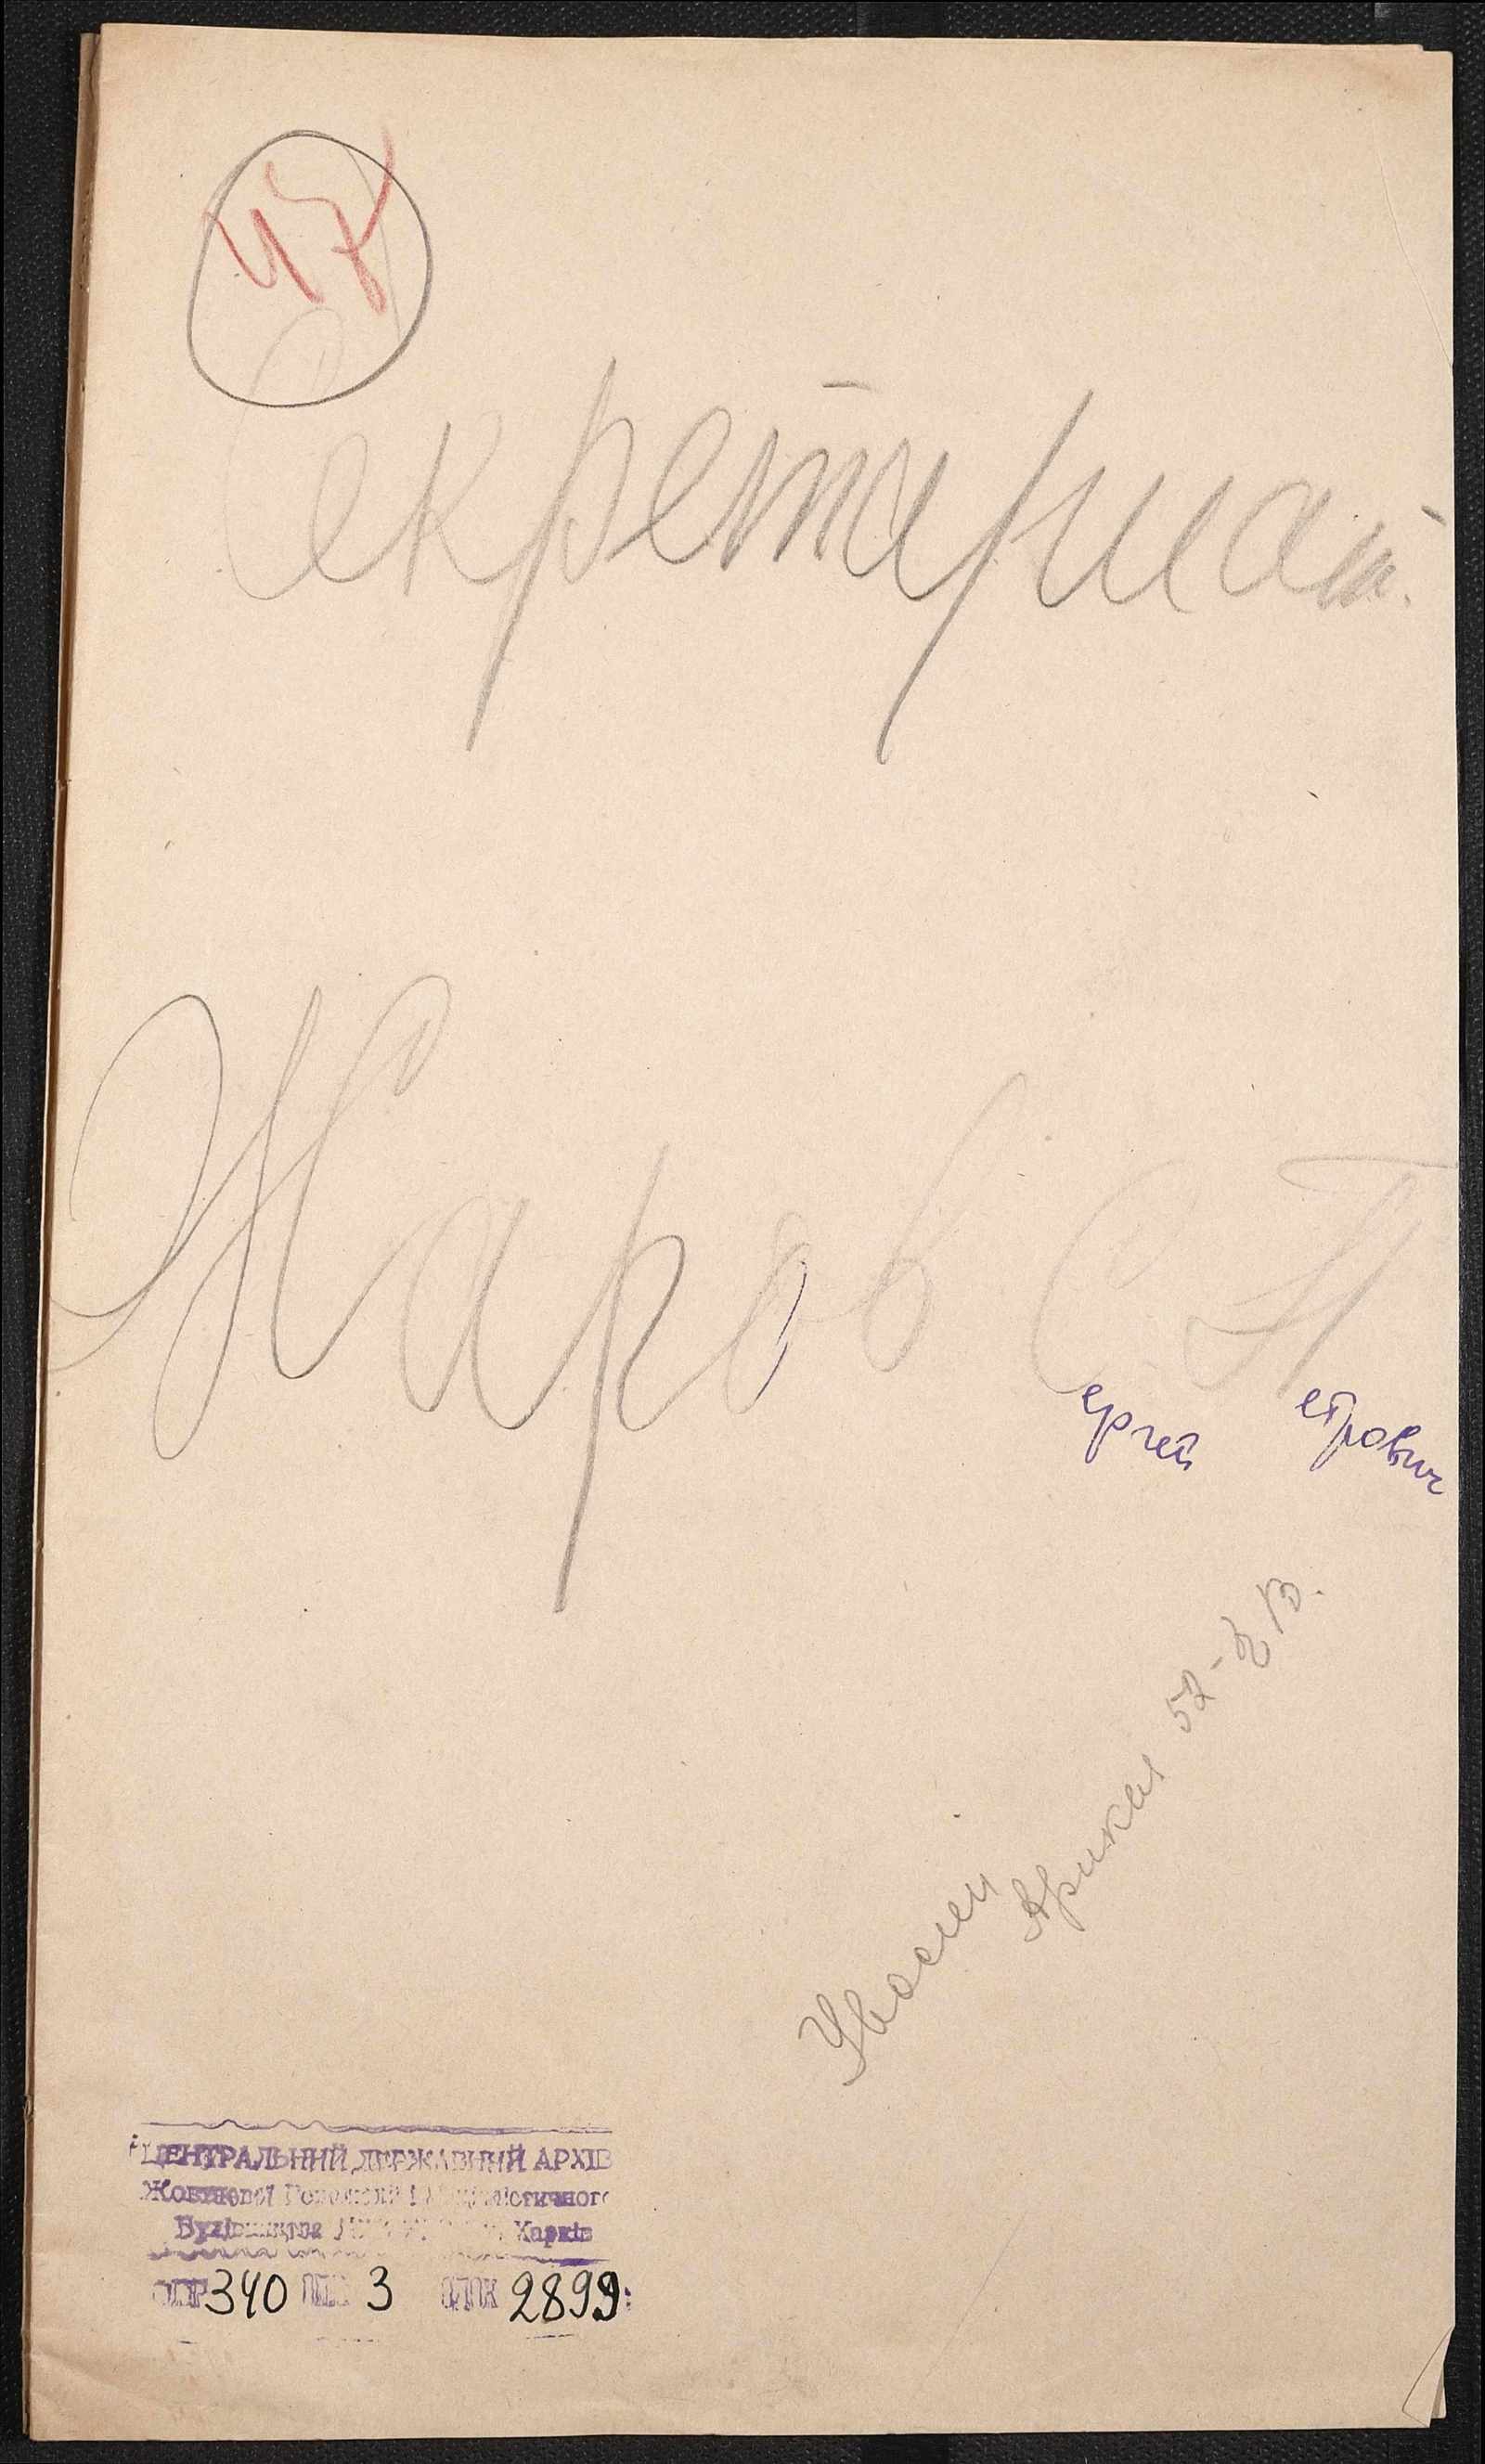 47
Секретариат.
Жаров С. П.
ергей етрович
Уволен
приказ 52-
ЦЕНТРАЛЬНИЙ ДЕРЖАВНИЙ АРХІВ
Жовтневої
Будівництва Харків
340 3 2899